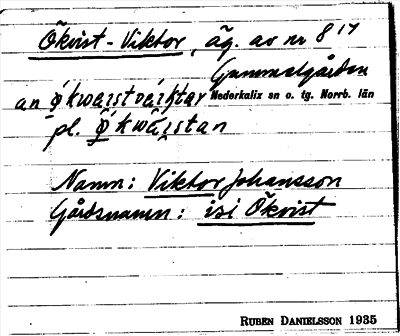 Ökvist-Viktor, äg. av nr 8¹⁷
Gammelgården
an ǿkwaistváiktar Nederkalix sn o. tg. Norrb. län
pl. ǿkwaistan
Namn: Viktor Johansson
Gårdsnamn: isi Ökvist
RUBEN DANIELSSON 1935